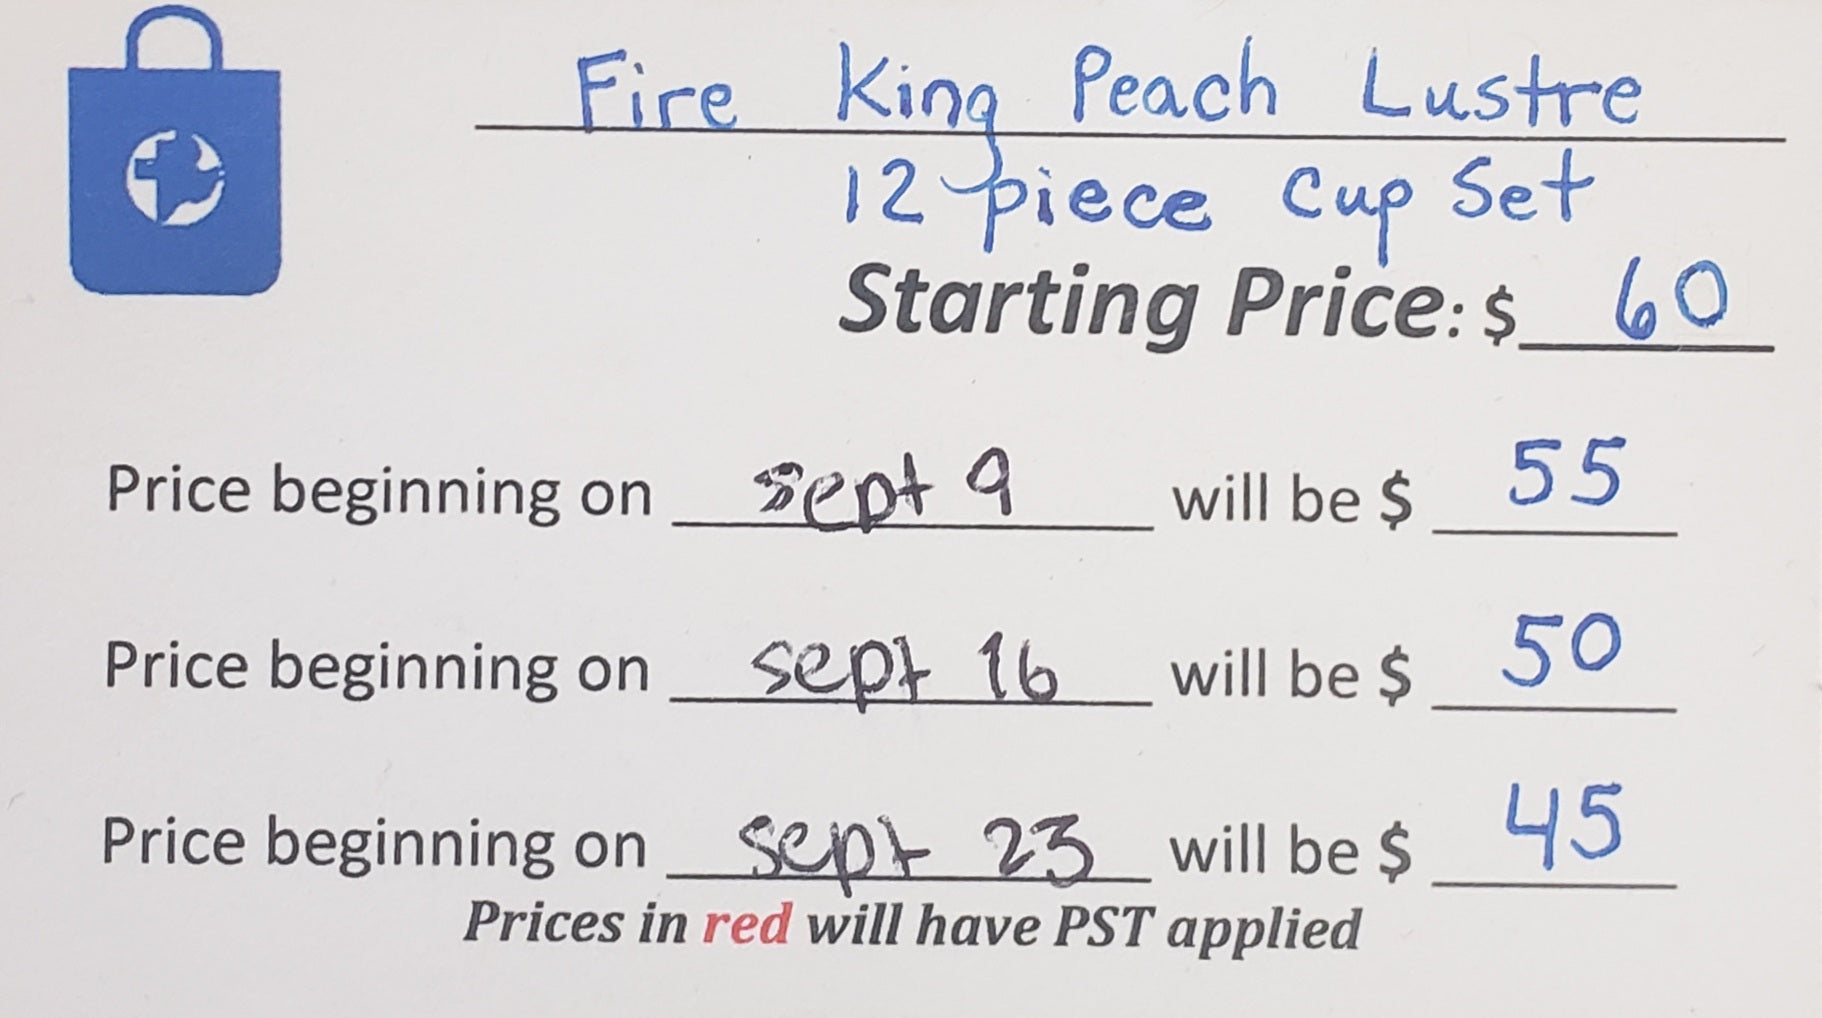 Fire King Peach Lustre
12 piece Cup Set
Starting Price: $ 60
Price beginning on sept 9 will be $ 55
Price beginning on sept 16 will be $ 50
Price beginning on sept 23 will be $ 45
Prices in red will have PST applied